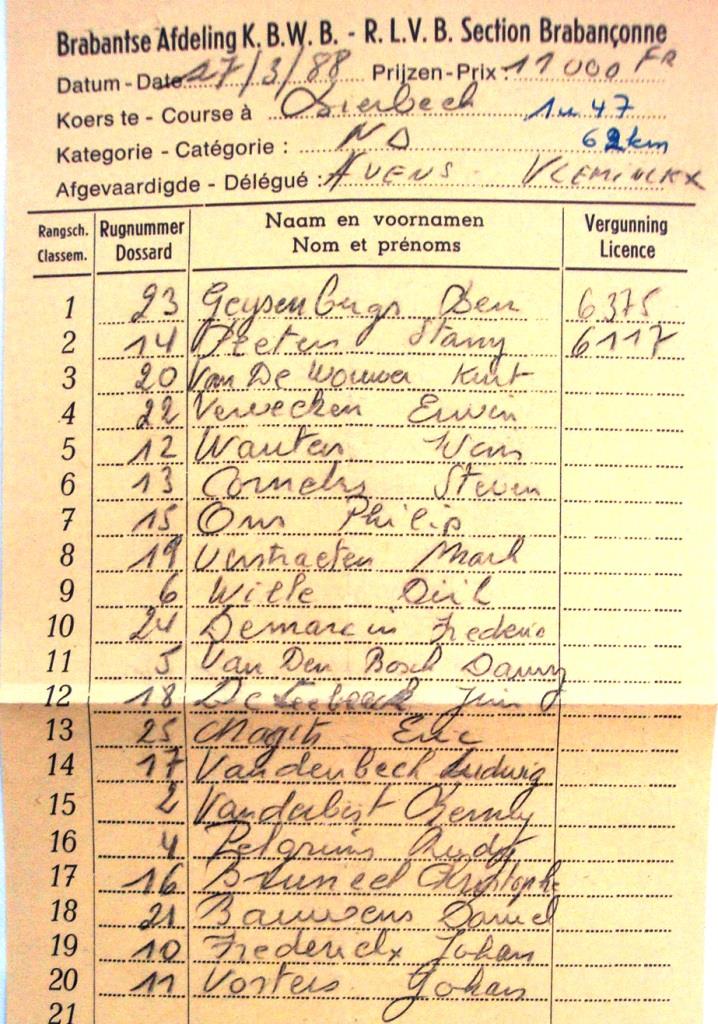 Brabantse Afdeling K.B.W.B. - R.L.V.B. Section Brabançonne
Datum - Date 27/3/88 Prijzen - Prix : 11000 FR
Koers te - Course à 1u47
Kategorie - Catégorie : ND 62km
Afgevaardigde - Délégué : Avens Vleminckx
Rangsch. Classem. Rugnummer Dossard Naam en voornamen Nom et prénoms Vergunning Licence
1 23 Geysenbergs 6375
2 14 Peeters Stany 6117
3 20 Van De Wouwer Kurt
4 22 Vervecken Erwin
5 12 Wouters Wim
6 13 Cornelis Steven
7 15 Ons Philip
8 19 Verstraeten Mark
9 6 Wille Dirk
10 24 Demarcin Frederic
11 5 Van Den Bosch Danny
12 18 Jim
13 25 Magits Eric
14 17 Vandenbech Ludwig
15 2 Vanderbist
16 4 Pelgrims Rudy
17 16 Bruneel Christophe
18 21 Bauwens Daniel
19 10 Frederickx Johan
20 11 Vosters Johan
21